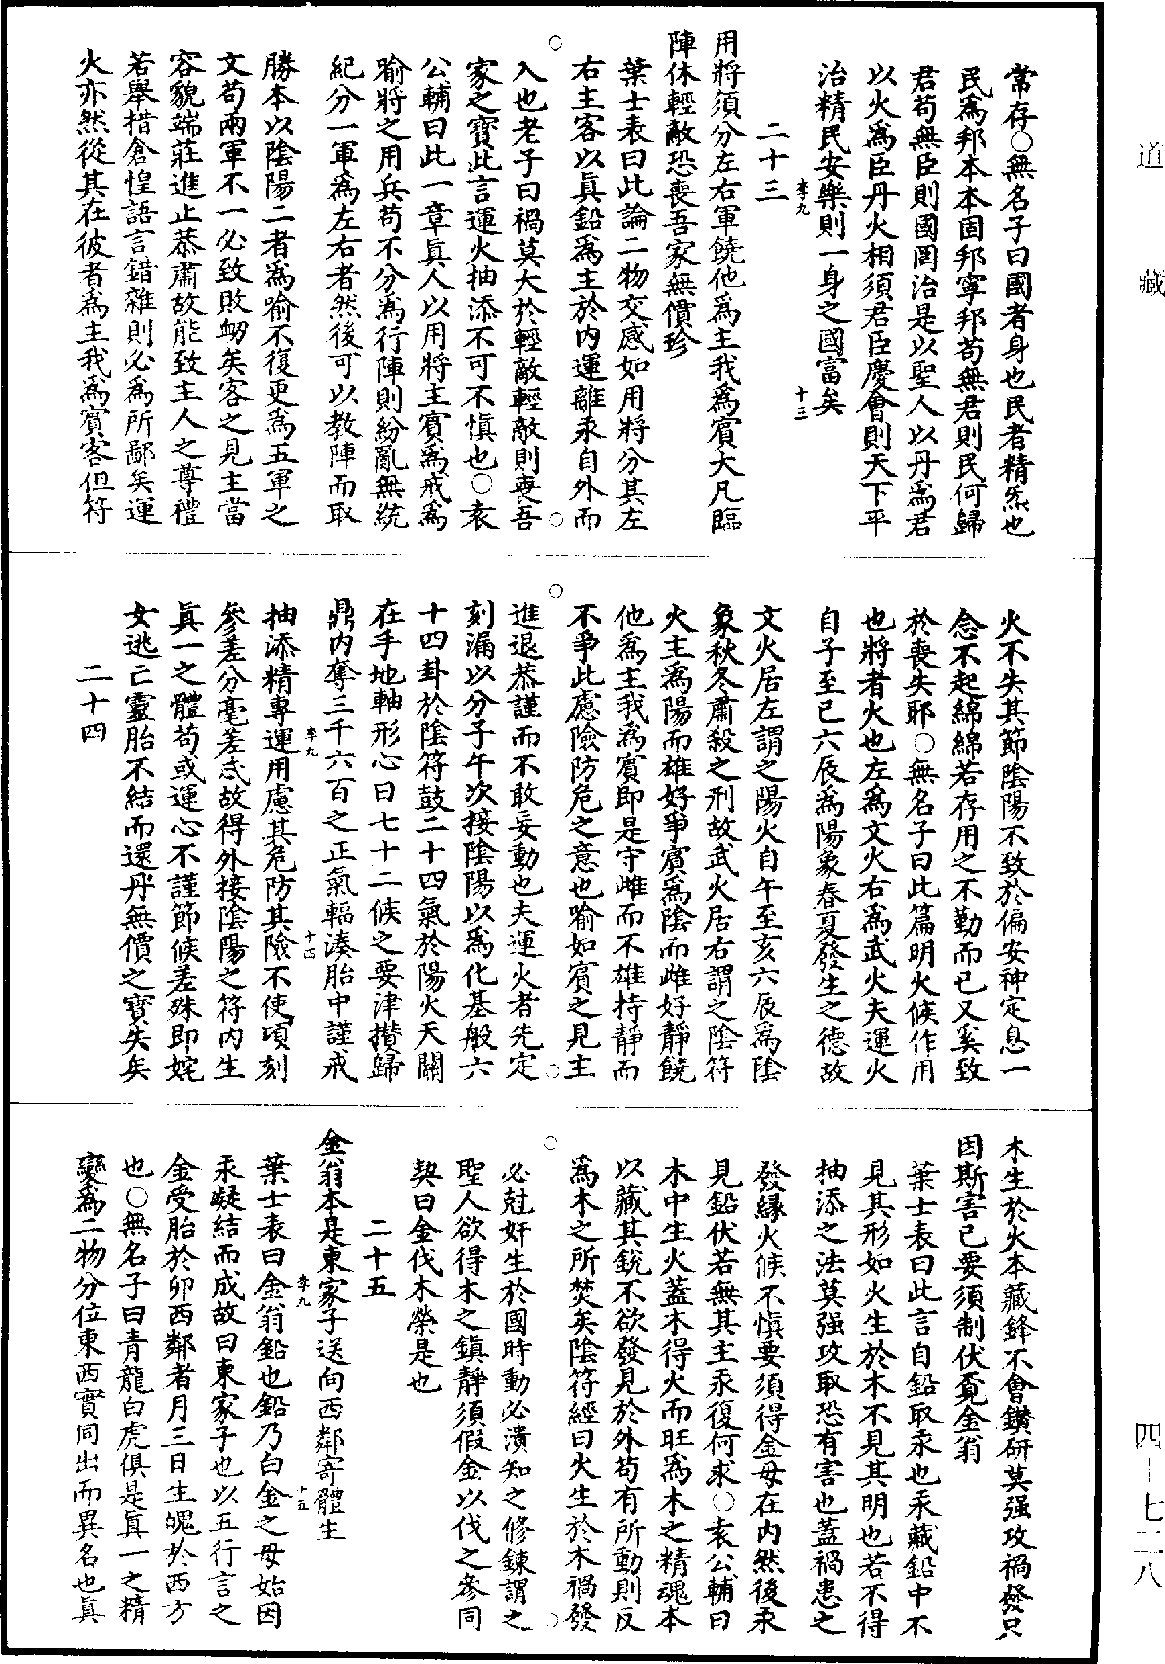 道藏
四—七二八
常存○無名子曰國者身也民者精炁也
民爲邦本本固邦寧邦苟無君則民何歸
君苟無臣則國罔治是以聖人以丹爲君
以火爲臣丹火相須君臣慶會則天下平
治精民安樂則一身之國富矣
李九
十三
二十三
用將須分左右軍饒他爲主我爲賓大凡臨
陣休輕敵恐喪吾家無價珍
葉士表曰此論二物交感如用將分其左
右主客以眞鉛爲主於內運離汞自外而
入也老子曰禍莫大於輕敵輕敵則喪吾
家之寶此言運火抽添不可不愼也○袁
公輔曰此一章眞人以用將主賓爲戒爲
喻將之用兵苟不分爲行陣則紛亂無統
紀分一軍爲左右者然後可以教陣而取
勝本以陰陽二者爲喻不復更爲五軍之
文苟兩軍不一必致敗衂矣客之見主當
容貌端莊進止恭肅故能致主人之尊禮
若舉措倉惶語言錯雜則必爲所鄙矣運
火亦然從其在彼者爲主我爲賓客但符
火不失其節陰陽不致於偏安神定息一
念不起綿綿若存用之不勤而已又奚致
於喪失耶○無名子曰此篇明火候作用
也將者火也左爲文火右爲武火夫運火
自子至巳六辰爲陽象春夏發生之德故
文火居左謂之陽火自午至亥六辰爲陰
象秋冬肅殺之刑故武火居右謂之陰符
火主爲陽而雄好爭賓爲陰而雌好靜饒
他爲主我爲賓即是守雌而不雄持靜而
不爭此慮險防危之意也喻如賓之見主
進退恭謹而不敢妄動也夫運火者先定
刻漏以分子午次接陰陽以爲化基般六
十四卦於陰符鼓二十四氣於陽火天關
在手地軸形心曰七十二候之要津攢歸
鼎內奪三千六百之正氣輻湊胎中謹戒
李九
十四
抽添精專運用慮其危防其險不使頃刻
參差分毫差忒故得外接陰陽之符內生
眞一之體苟或運心不謹節候差殊即姹
女逃亡靈胎不結而還丹無價之寶失矣
二十四
木生於火本藏鋒不會鑽研莫强攻禍發只
因斯害己要須制伏覓金翁
葉士表曰此言自鉛取汞也汞藏鉛中不
見其形如火生於木不見其明也若不得
抽添之法莫强攻取恐有害也蓋禍患之
發緣火候不愼要須得金母在內然後汞
見鉛伏若無其主汞復何求○袁公輔曰
木中生火蓋木得火而旺爲木之精魂本
以藏其銳不欲發見於外苟有所動則反
爲木之所焚矣陰符經曰火生於木禍發
必尅奸生於國時動必潰知之修鍊謂之
聖人欲得木之鎮靜須假金以伐之參同
契曰金伐木榮是也
二十五
金翁本是東家子送向西鄰寄體生
李九
十五
葉士表曰金翁鉛也鉛乃白金之母始因
汞凝結而成故曰東家子也以五行言之
金受胎於卯西鄰者月三日生魄於西方
也○無名子曰青龍白虎俱是眞一之精
變爲二物分位東西實同出而異名也眞